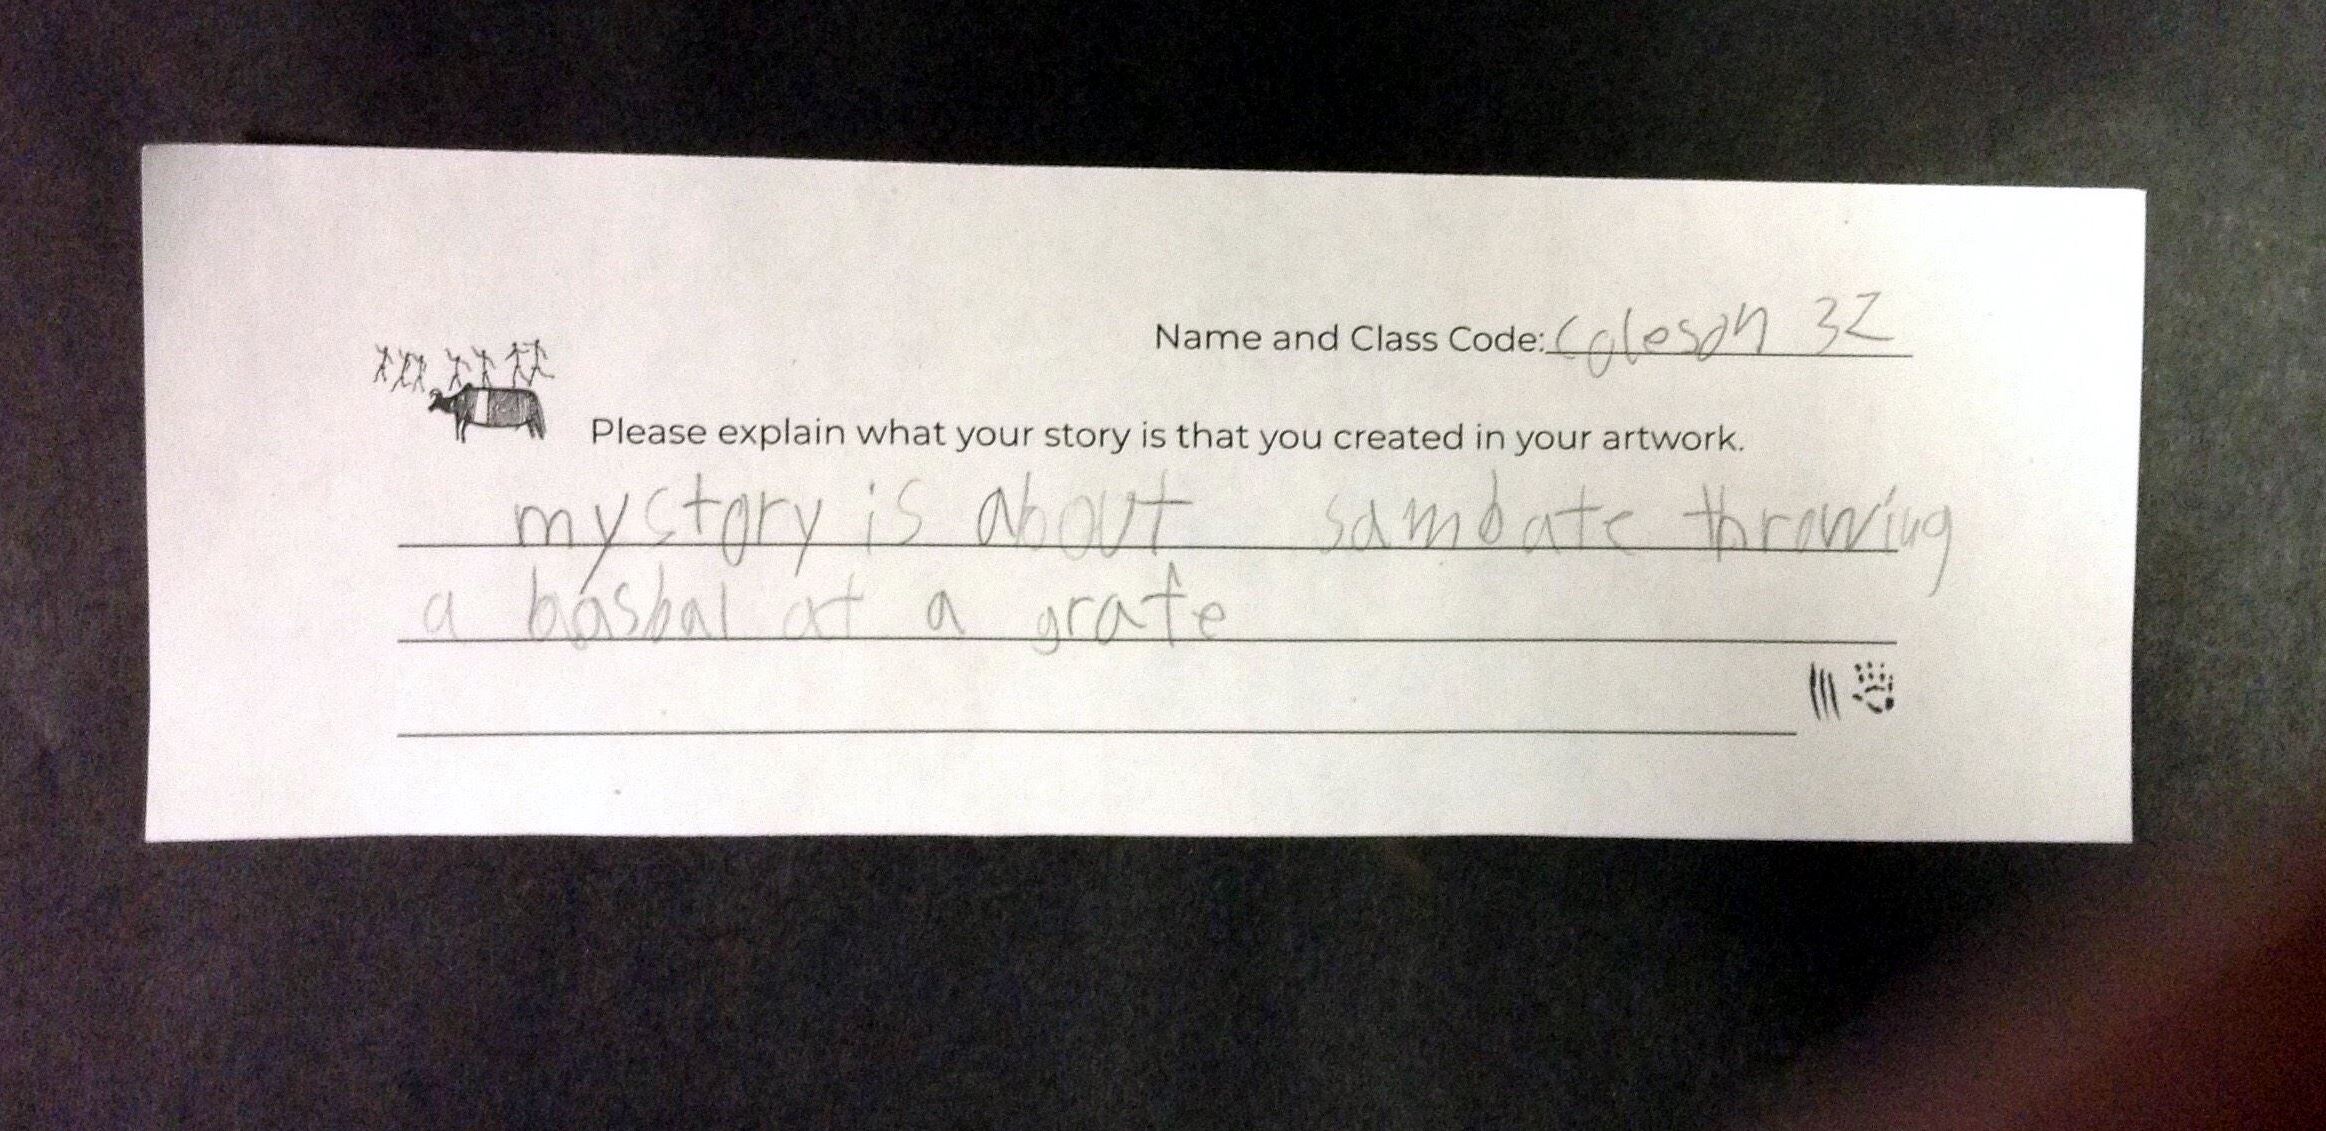 Name and Class Code: Coleson 3Z
Please explain what your story is that you created in your artwork.
my story is about sambate throwing
a basbal at a grafe